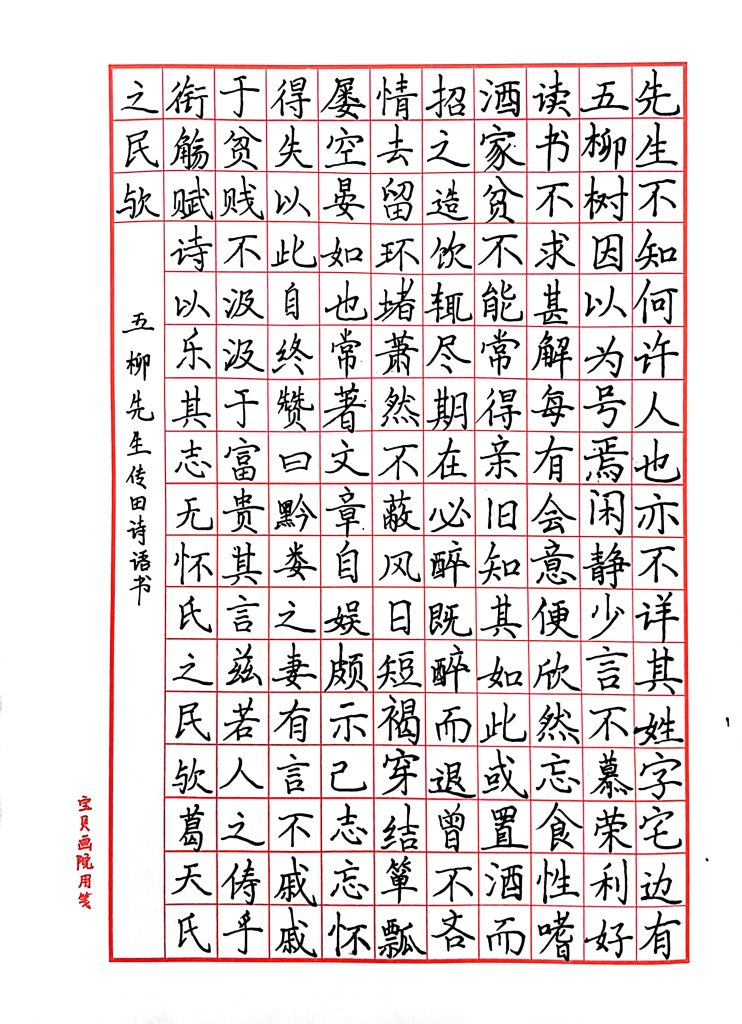 先生不知何许人也亦不详其姓字宅边有
五柳树因以为号焉闲静少言不慕荣利好
读书不求甚解每有会意便欣然忘食性嗜
酒家贫不能常得亲旧知其如此或置酒而
招之造饮辄尽期在必醉既醉而退曾不吝
情去留环堵萧然不蔽风日短褐穿结箪瓢
屡空晏如也常著文章自娱颇示己志忘怀
得失以此自终赞曰黔娄之妻有言不戚戚
于贫贱不汲汲于富贵其言兹若人之俦乎
衔觞赋诗以乐其志无怀氏之民欤葛天氏
之民欤
五柳先生传田诗语书
宝贝画院用笺